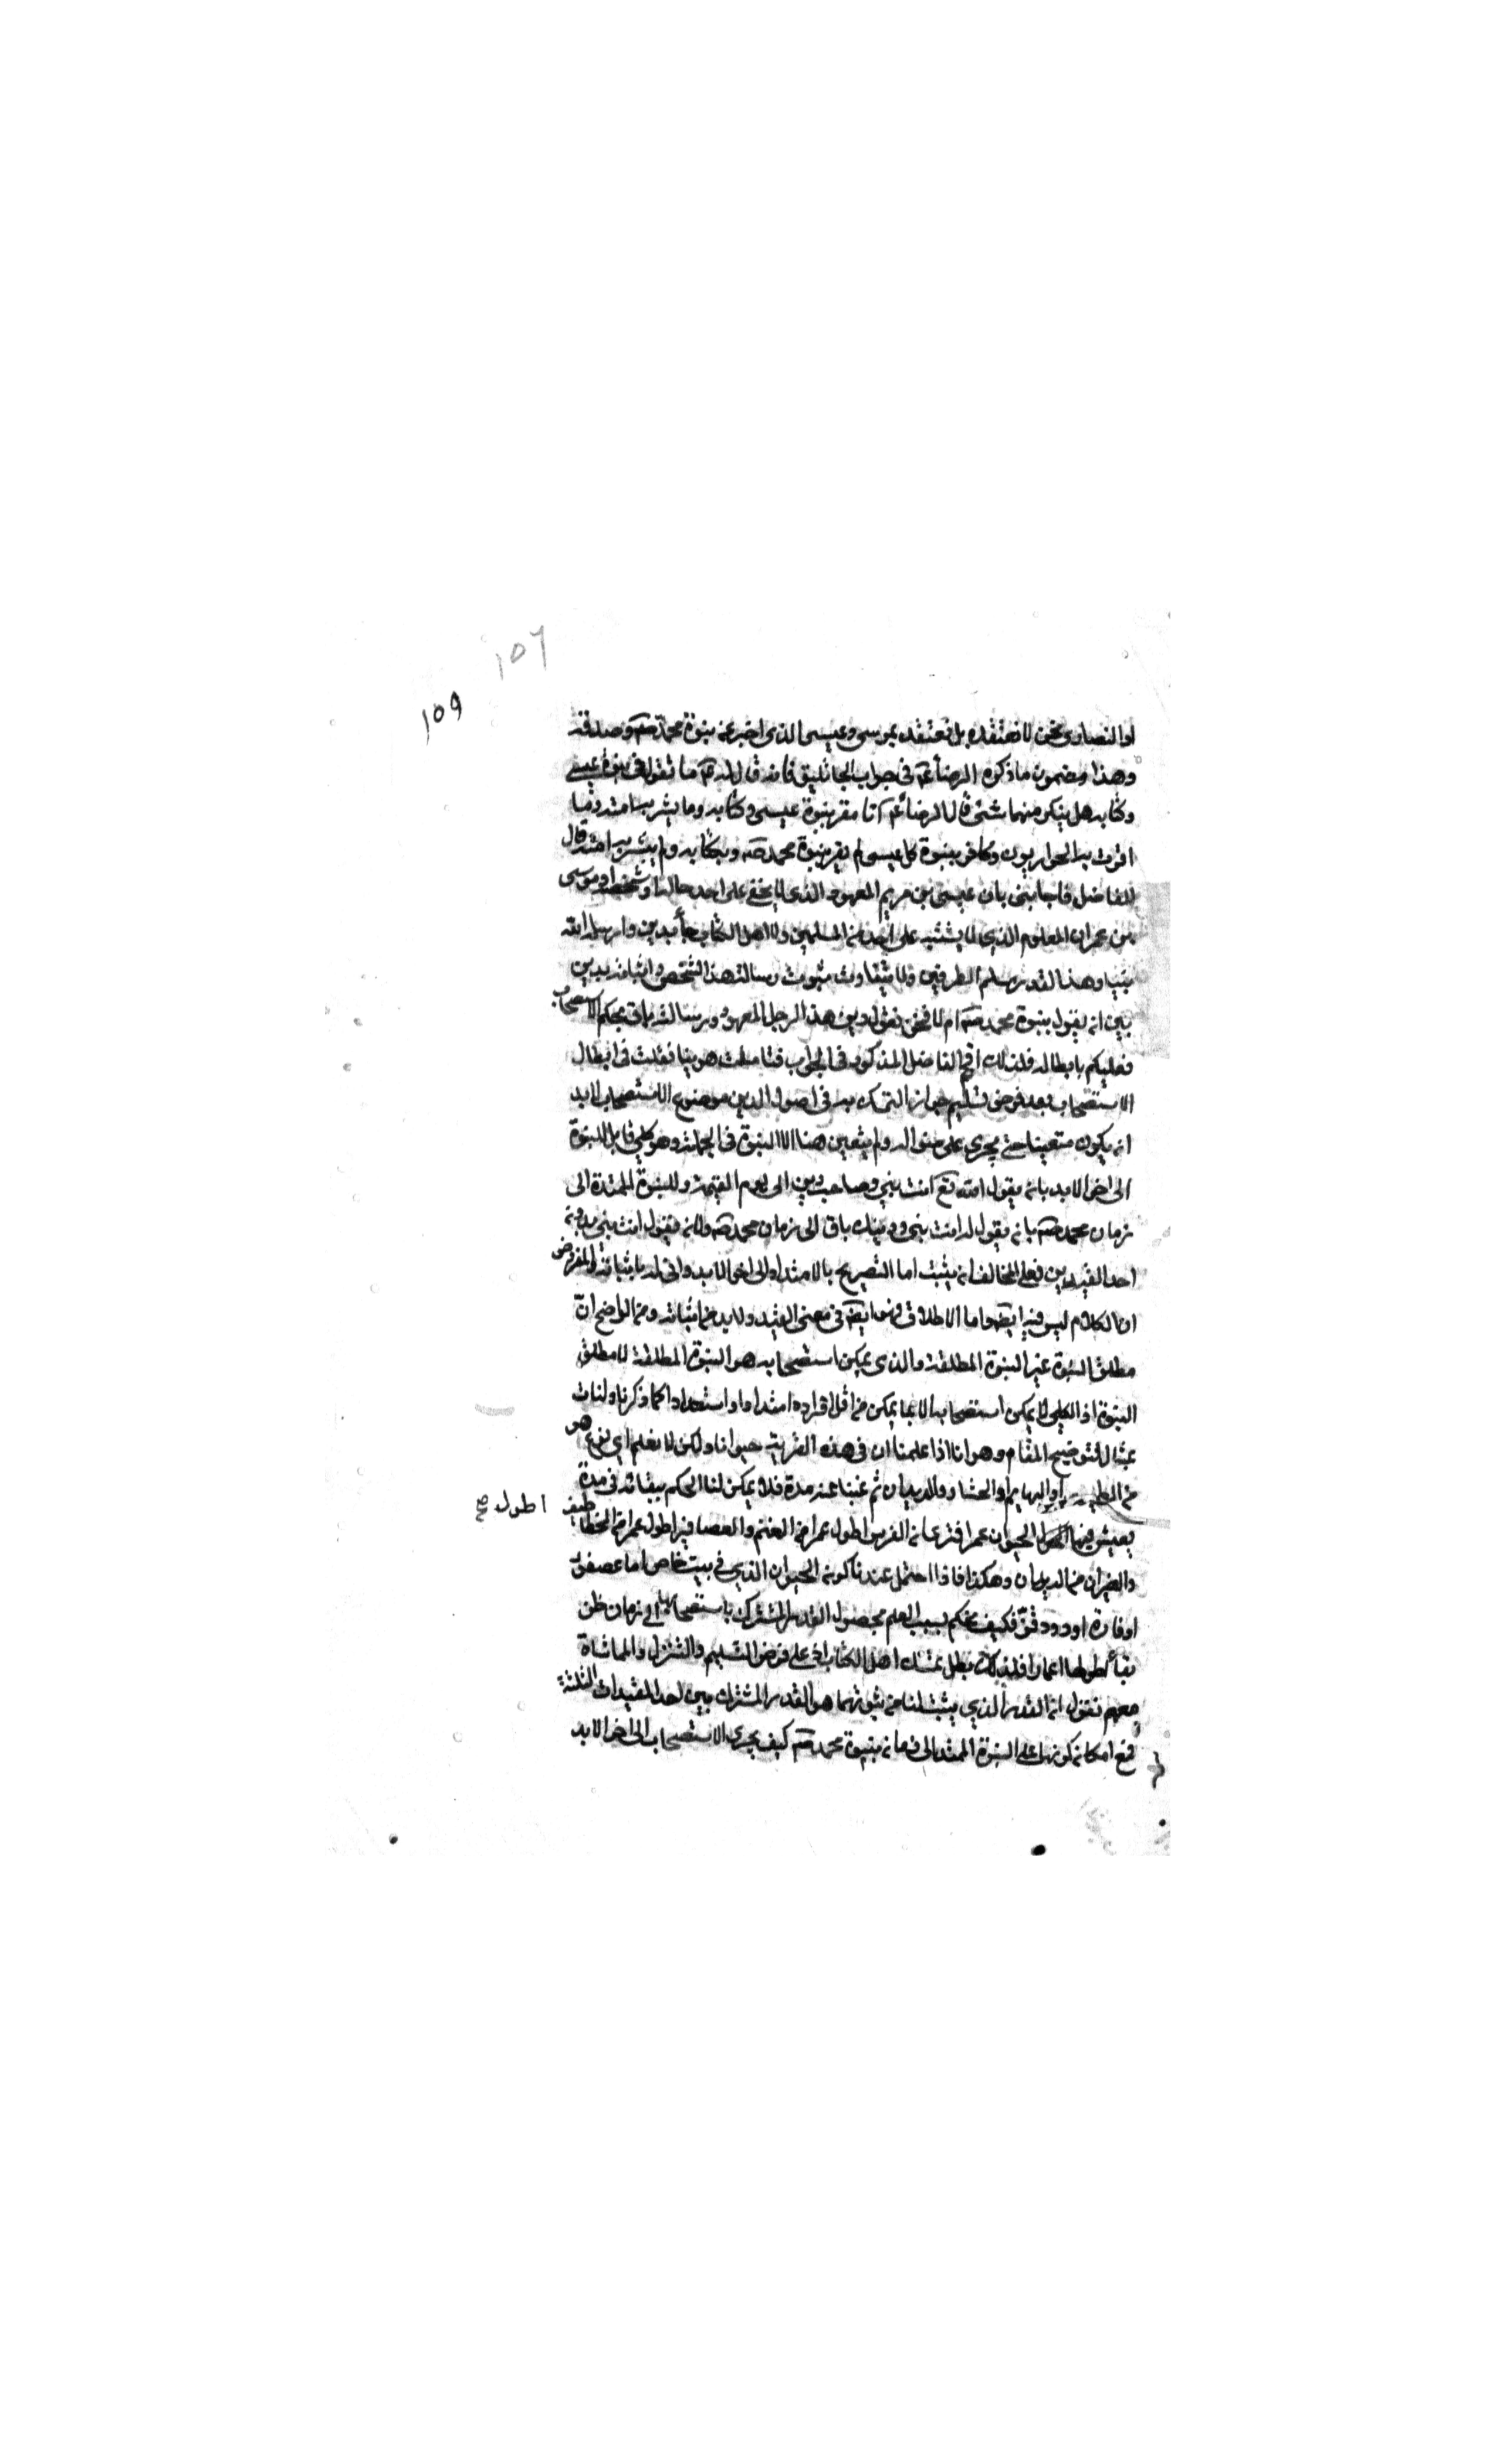 ١٥٦
١٥٩
او النصارى نحن لا نعتقده بل نعتقد بموسى وعيسى الذى اخبر عن نبوة محمد صه وصدقه
وهذا مضمون ما ذكره الرضا ع فى جواب الجاثليق فانه قال له ع ما تقول فى نبوة عيسى
وكتابه هل ينكر منهما شئ قال الرضا ع انا مقر بنبوة عيسى وكتابه وما بشر به امته وما
اقرت به الحواريون وكافر بنبوة كل عيسى لم يقر بنبوة محمد صه وبكتابه ولم يبشر به امته قال
الفاضل فاجابنى بان عيسى بن مريم المعهود الذى لا يخفى على احد حاله وشخصه او موسى
بن عمران المعلوم الذى لا يشتبه على احد من المسلمين ولا اهل الكتاب جاء بدين وارسله الله
نبيا وهذا القدر مسلم الطرفين ولا يتفاوت ثبوت رسالة هذا الشخص واتيانه بدين
بين ان يقول بنبوة محمد صه ام لا فنحن نقول دين هذا الرجل المعهود ورسالته باق بحكم الاستصحاب
فعليكم بابطاله فلذلك افحم الفاضل المذكور فى الجواب فتاملت هوينا فقلت فى ابطال
الاستصحاب بعد فرض تسليم جواز التمسك به فى اصول الدين موضوع الاستصحاب لا بد
ان يكون متعينا حتى يجرى على منواله ولم يتعين هنا الا النبوة فى الجملة وهو كلى قابل للنبوة
الى اخر الابد بان يقول الله تع انت نبى وصاحب دين الى يوم القيمة وللنبوة الممتدة الى
زمان محمد صه بان يقول له انت نبى ودينك باق الى زمان محمد صه ولان يقول انت نبى بدون
احد القيدين فعلى المخالف ان يثبت اما التصريح بالامتداد الى اخر الابد وانى له باثباته والمفروض
ان الكلام ليس فيه ايضه واما الاطلاق فهو ايضه فى معنى القيد ولا بد من اثباته ومن الواضح ان
مطلق النبوة غير النبوة المطلقة والذى يمكن استصحابه هو النبوة المطلقة لا مطلق
النبوة اذ الكلى لا يمكن استصحابه الا بما يمكن من اقل افراده امتدادا واستعدادا كما ذكرنا ولنات
بمثال لتوضيح المقام وهو انا اذا علمنا ان فى هذه القرية حيوانا ولكن لا نعلم اى نوع هو
من الطيور او البهايم او الحشار والديدان ثم غبنا عنه مدة فلا يمكن لنا الحكم ببقائه فى مدة
يعيش فيها الحيوان عمرا فترى ان الفرس اطول عمرا من الغنم والعصافير اطول عمرا من الخطاطيف
اطول صح
والفيران من الديدان وهكذا فاذا احتمل عندنا كون الحيوان الذى فى بيت خاص اما عصفور
او فارة او دود قز فكيف نحكم بسبب العلم بحصول القدر المشترك باستصحابها الى زمان ظن
بقاء اطولها اعمارا فلذلك بطل تمسك اهل الكتاب اذ على فرض التسليم والتنزل والمماشاة
معهم نقول ان القدر الذى يثبت لنا من نبوتهما هو القدر المشترك بين احد المقيدات الثلثة
فمع امكان كونها على النبوة الممتد الى زمان نبوة محمد صه كيف يجرى الاستصحاب الى اخر الابد